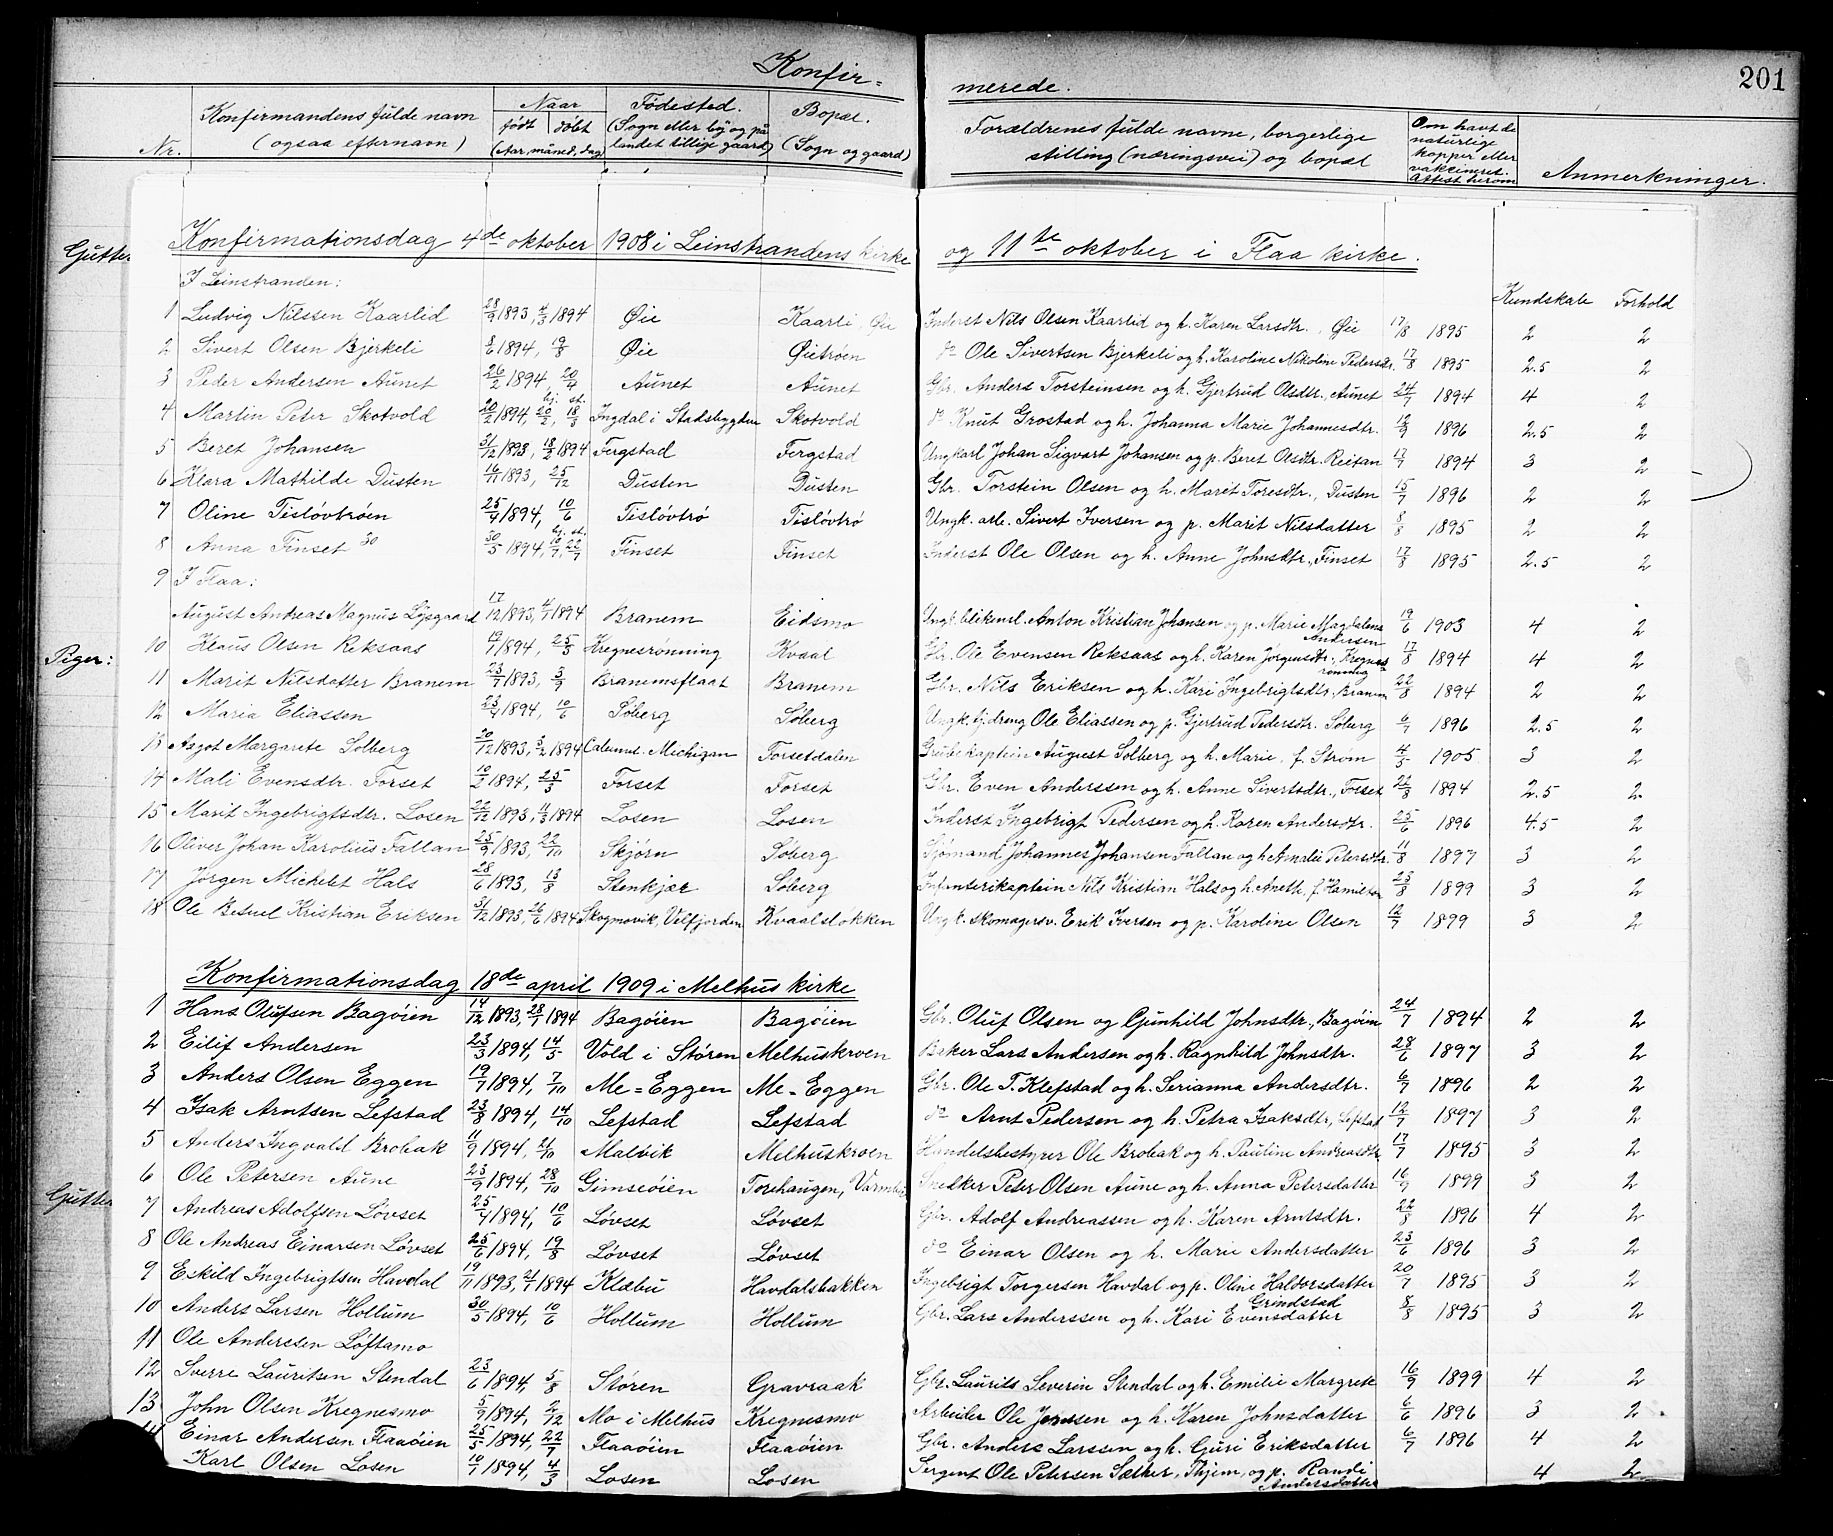 Konfir- merede. 201
Nr. Konfirmandens fulde navn (ogsaa efternavn) Naar født døbt (Aar, måned, dag) Fødested. (Sogn eller by og på landet tillige gaard) Bopæl. (Sogn og gaard) Forældrenes fulde navne, borgerlige stilling (næringsvei) og bopæl Om havt de naturlige kopper eller vakcineret. Attest herom Anmerkninger.
Gutter Konfirmationsdag 4de oktober 1908 i Leinstrandens kirke og 11te oktober i Flaa kirke.
I Leinstranden: Kundskab Forhold
1 Ludvig Nilssen Kaarlid 28/9 1893, 4/3 1894 Øie Kaarli, Øie Inderst Nils Olsen Kaarlid og h. Karen Larsdtr., Øie 17/8 1895 2 2
2 Sivert Olsen Bjerkeli 8/6 1894, 19/8 Øie Øietrøen do Ole Sivertsen Bjerkeli og h. Karoline Nikoline Pedersdtr. 17/8 1895 2.5 2
3 Peder Andersen Aunet 26/2 1894, 20/4 Aunet Aunet Gbr. Anders Torsteinsen og h. Gjertrud Olsdtr., Aunet 24/7 1894 4 2
4 Martin Peter Skotvold 20/2 1894, hj. 20/2, st. 18/3 Ingdal i Stadsbygden Skotvold do Knut Grostad og h. Johanna Marie Johannesdtr. 12/9 1896 2.5 2
5 Beret Johansen 31/12 1893, 18/3 1894 Fergstad Fergstad Ungkarl Johan Sigvart Johansen og p. Beret Olsdtr. Reitan 17/7 1894 3 2
6 Klara Mathilde Dusten 16/11 1893, 25/12 Dusten Dusten Gbr. Torstein Olsen og h. Marit Toresdtr., Dusten 15/7 1896 2 2
7 Oline Tisløvtrøen 25/4 1894, 10/6 Tisløvtrø Tisløvtrø Ungk. arb. Sivert Iversen og p. Marit Nilsdatter 8/8 1895 2 2
8 Anna Finset 30 30/5 1894, hj. 15/7, st. 22/7 Finset Finset Inderst Ole Olsen og h. Anne Johnsdtr., Finset 17/8 1895 2.5 2
9 I Flaa:
August Andreas Magnus Lysgaard 17/12 1893, 4/1 1894 Branem Eidsmo Ungk. blikensl. Anton Kristian Johansen og p. Marie Magdalena Andersen 19/6 1903 4 2
Piger: 10 Klaus Olsen Reksaas 19/1 1894, 25/3 Kregnesrønning Kvaal Gbr. Ole Evensen Reksaas og h. Karen Jørgensdtr., Kregnesrønning 17/8 1894 4 2
11 Marit Nilsdatter Branem 23/7 1893, 3/9 Branemsflaat Branem Gbr. Nils Eriksen og h. Kari Ingebrigtsdtr., Branem 22/8 1894 2 2
12 Maria Eliassen 23/4 1894, 10/6 Søberg Søberg Ungk. tjdreng Ole Eliassen og p. Gjertrud Pedersdtr. Søberg 6/7 1896 2.5 2
13 Aagot Margarete Solberg 20/12 1893, 3/2 1894 Calumet. Michigan Forsetdalen Grubekaptein August Solberg og h. Marie, f. Strøm 4/5 1905 3 2
14 Mali Evensdtr. Forset 10/2 1894, 25/3 Forset Forset Gbr. Even Anderssen og h. Anne Sivertsdtr., Forset 22/8 1894 2.5 2.
15 Marit Ingebrigtsdtr. Losen 22/12 1893, 11/3 1894 Losen Losen Inderst Ingebrigt Pedersen og h. Karen Andersdtr. 23/6 1896 4.5 2
16 Oliver Johan Karolius Fallan 25/9 1893, 22/10 Skjørn Søberg Sjømand Johannes Johansen Fallan og h. Amalie Petersdtr. 11/8 1897 3 2
17 Jørgen Michelet Hals 28/6 1893, 13/8 Stenkjær Søberg Infanterikaptein Nils Kristian Hals og h. Aneth, f. Hamilton 23/8 1899 3 2
18 Ole Betuel Kristian Eriksen 31/12 1893, 26/6 1894 Skogmovik, Velfjorden Kvaalslokken Ungk. skomagersv. Erik Iversen og p. Karoline Olsen 12/7 1899 3 2
Konfirmationsdag 18de april 1909 i Melhus kirke
1 Hans Olufsen Bagøien 14/12 1893, 28/1 1894 Bagøien Bagøien Gbr. Oluf Olsen og Gunhild Johnsdtr., Bagøien 24/7 1894 2 2
2 Eilif Andersen 23/3 1894, 14/5 Vold i Støren Melhuskroen Baker Lars Andersen og h. Ragnhild Johnsdtr. 28/6 1897 3 2
3 Anders Olsen Eggen 19/7 1894, 7/10 Me=Eggen Me-Eggen Gbr. Ole T. Klefstad og h. Serianna Andersdtr. 6/7 1896 2 2
4 Isak Arntsen Lefstad 23/8 1894, 14/10 Lefstad Lefstad do Arnt Pedersen og h. Petra Isaksdtr, Lefstad 12/7 1897 3 2
5 Anders Ingvald Brobak 11/9 1894, 21/10 Malvik Melhuskroen Handelsbestyrer Ole Brobak og h. Pauline Andreasdtr. 17/7 1895 3 2
Gutter 6 Ole Petersen Aune 23/9 1894, 28/10 Gimseøien Torehaugen, Varmbu Snedker Peter Olsen Aune og h. Anna Petersdatter 16/9 1899 3 2
7 Andreas Adolfsen Løvset 25/4 1894, 10/6 Løvset Løvset Gbr. Adolf Andreassen og h. Karen Arntsdtr. 22/8 1896 4 2
8 Ole Andreas Einarsen Løvset 25/6 1894, 19/8 Løvset Løvset do Einar Olsen og h. Marie Andersdatter 23/6 1896 3 2
9 Eskild Ingebrigtsen Havdal 19/11 1893, 21/1 1894 Klæbu Havdalsbakken Ingebrigt Torgersen Havdal og p. Oline Haldorsdatter Grindstad 20/7 1895 3 2
10 Anders Larsen Hollum 30/5 1894, 10/6 Hollum Hollum Gbr. Lars Anderssen og h. Kari Evensdatter 8/8 1895 3 2
11 Ole Andersen Løftamo
12 Sverre Lauritsen Stendal 23/6 1894, 5/8 Støren Gravraak Gbr. Laurits Severin Stendal og h. Emilie Margrete 16/9 1899 4 2
13 John Olsen Kregnesmo 5/9 1894, 2/12 Mo i Melhus Kregnesmo Arbeider Ole Jenssen og h. Karen Johnsdatter 6/6 1896 3 2
14 Einar Andersen Flaaøien 25/5 1894, 22/7 Flaaøien Flaaøien Gbr. Anders Larssen og h. Guri Eriksdatter 6/7 1896 4 2
Karl Olsen Losen 10/7 1894, 4/3 Losen Losen Sergent Ole Petersen Sæther, Thjem, og p. Randi Andersdatter 4 2